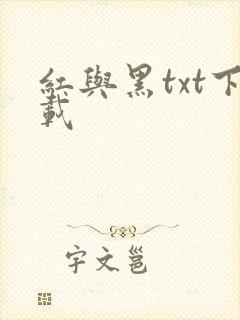 红與黑txt下
载
宇文邕